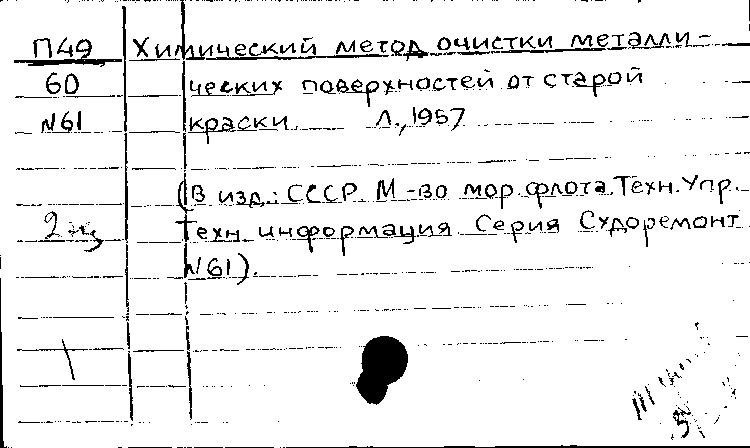 П49 Химический метод очистки металли-
60 ческих поверхностей от старой
N61 краски. Л., 1957
(В изд.: СССР. М-во мор. флота. Техн. Упр.
2 экз Техн. информация. Серия Судоремонт
N61).